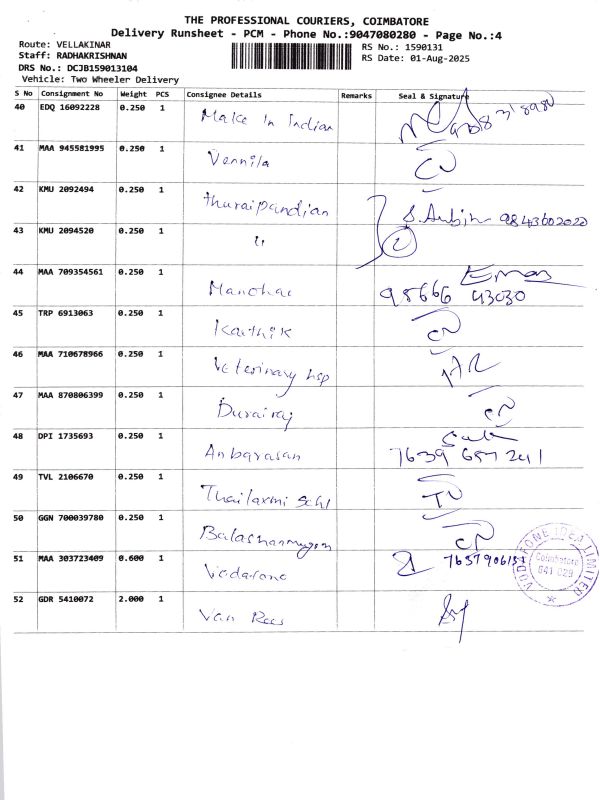 THE PROFESSIONAL COURIERS, COIMBATORE
Delivery Runsheet - PCM - Phone No.:9047080280 - Page No.:4
Route: VELLAKINAR
Staff: RADHAKRISHNAN
DRS No.: DCJB159013104
Vehicle: Two Wheeler Delivery
RS No.: 1590131
RS Date: 01-Aug-2025
S No Consignment No Weight PCS Consignee Details Remarks Seal & Signature
40 EDQ 16092228 0.250 1 Make In Indian
41 MAA 945581995 0.250 1 Vennila
42 KMU 2092494 0.250 1 thuraipandian
43 KMU 2094520 0.250 1 " 9843602020
44 MAA 709354561 0.250 1 Manohar 98666 43030
45 TRP 6913063 0.250 1 Karthik
46 MAA 710678966 0.250 1 Veterinary hsp
47 MAA 870806399 0.250 1 Durairaj
48 DPI 1735693 0.250 1 Anbarasan 7639 657 241
49 TVL 2106670 0.250 1 Thailaxmi Schl
50 GGN 700039780 0.250 1
51 MAA 303723409 0.600 1
52 GDR 5410072 2.000 1 Van Rees
VODAFONE IDEA LIMITED
Coimbatore
641 029